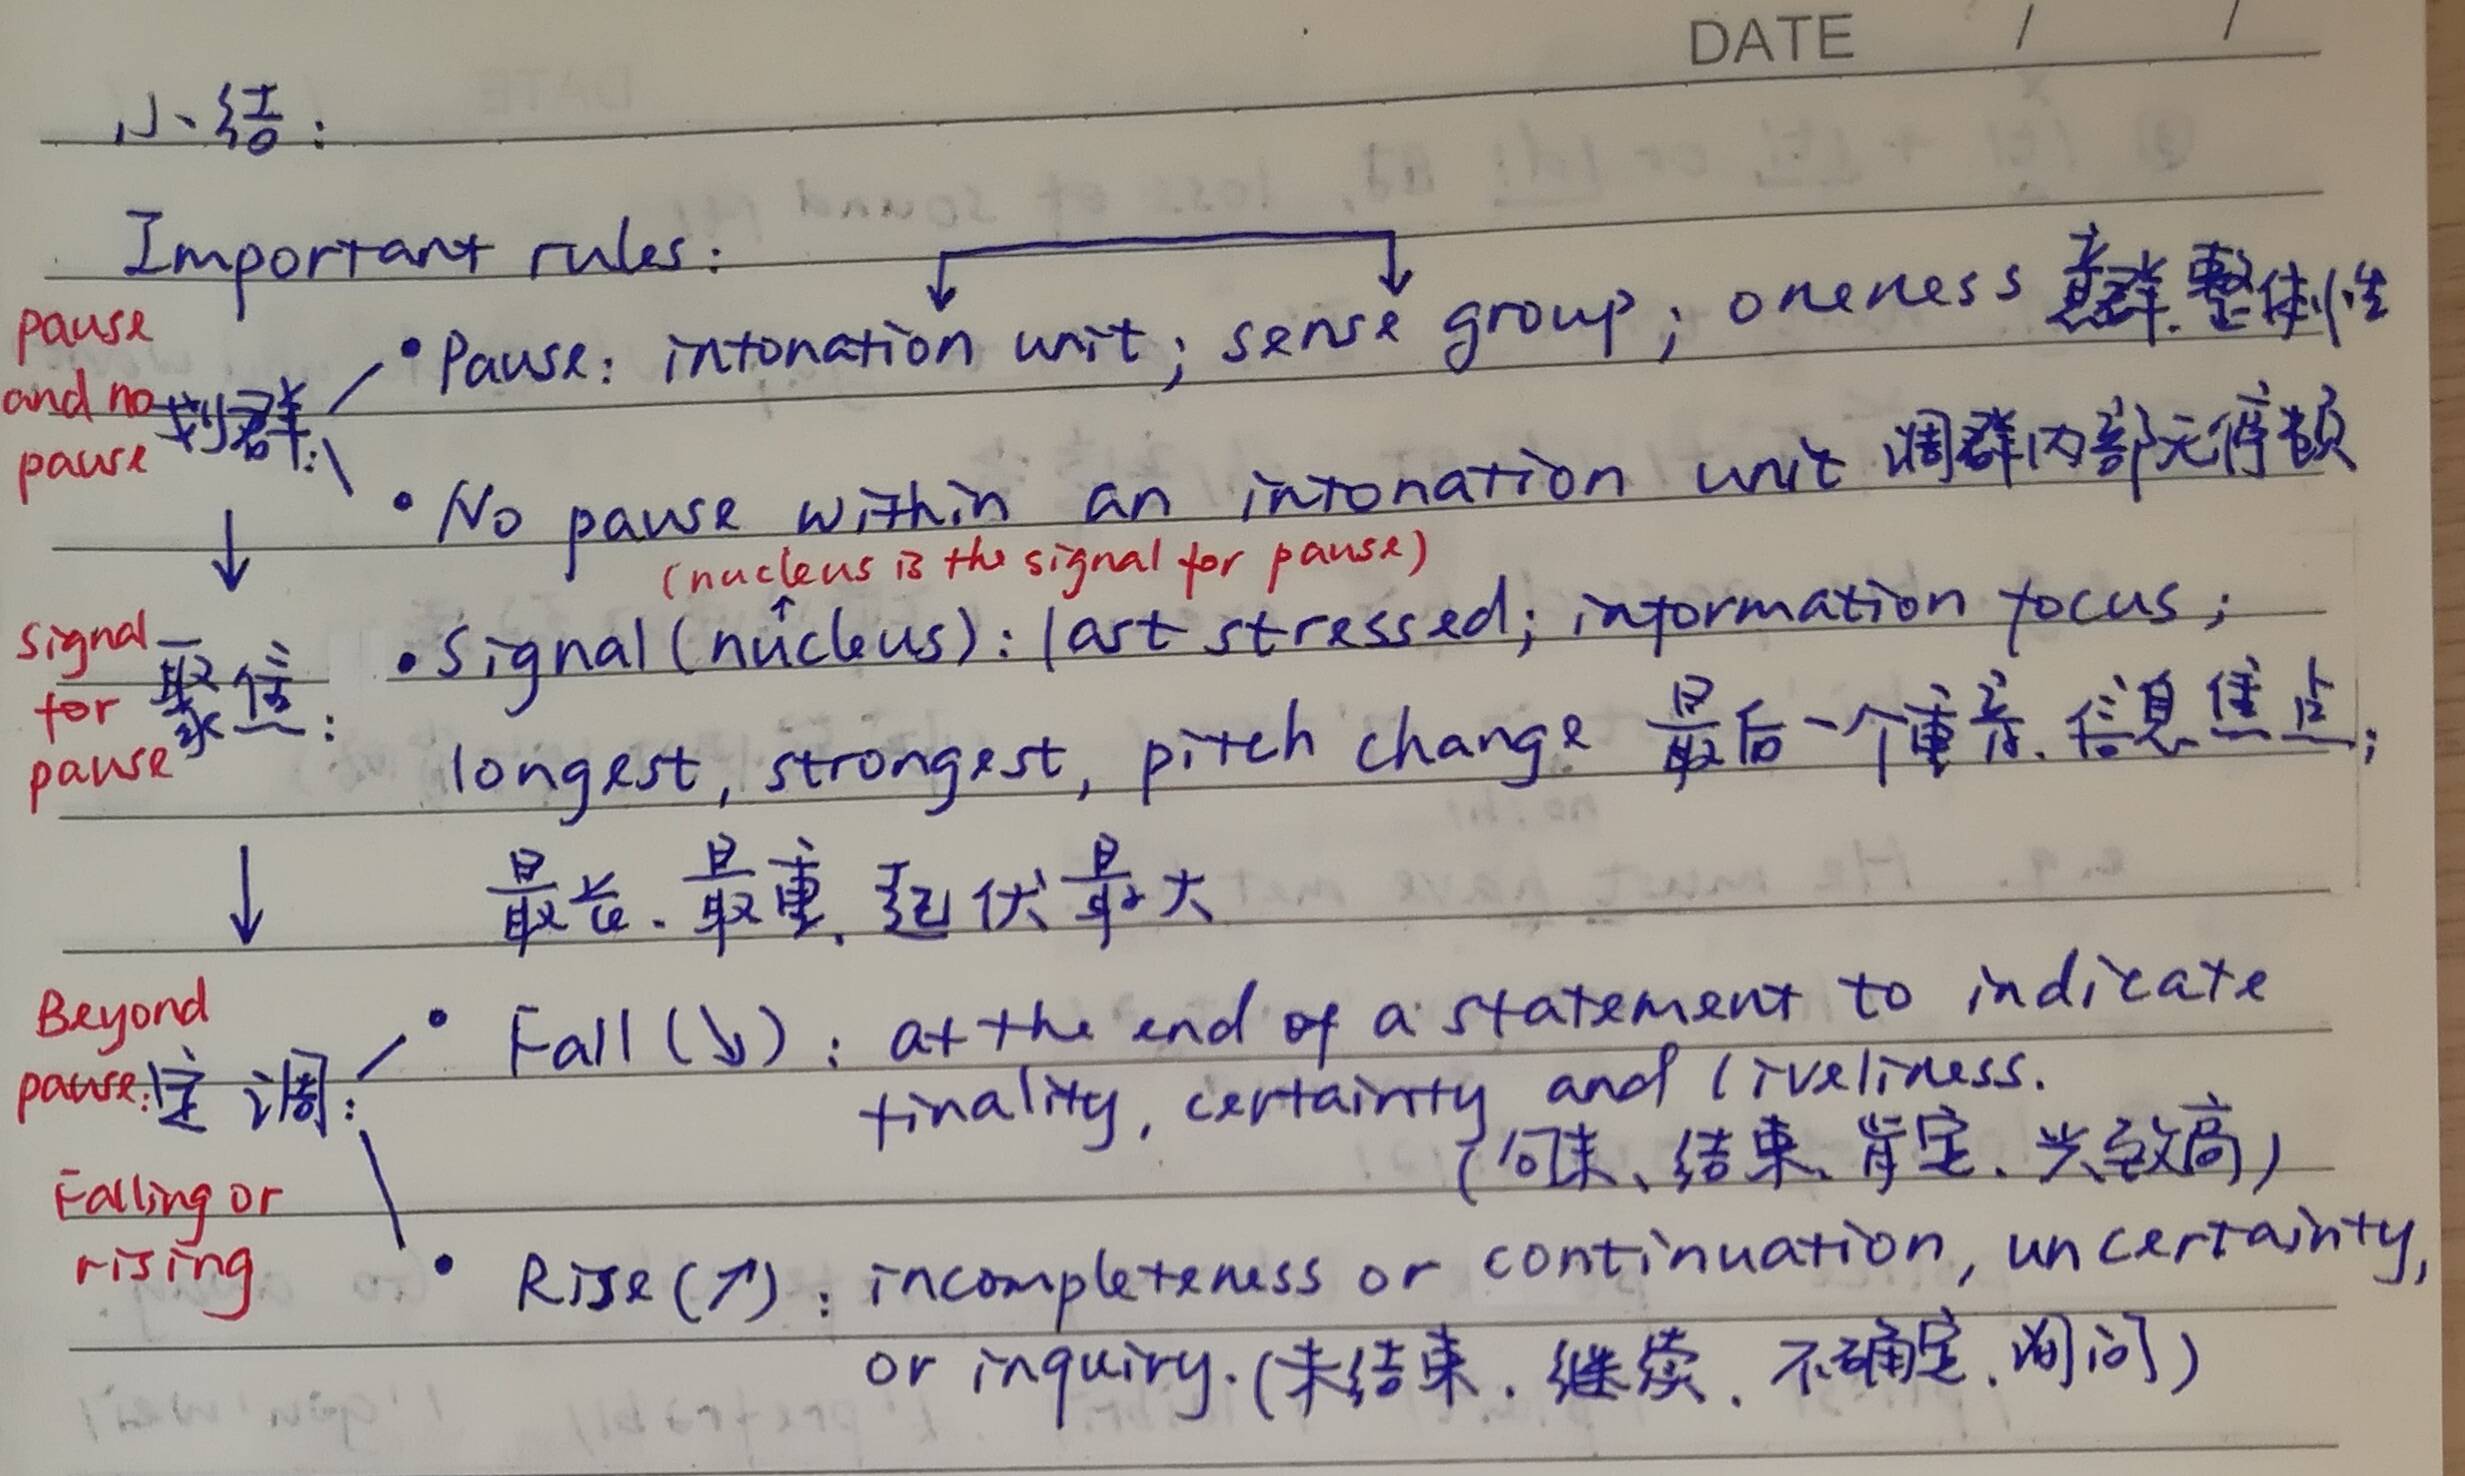 DATE / /
小结：
Important rules:
pause and no pause
划群：
• Pause: intonation unit; sense group; oneness 意群、整体性
• No pause within an intonation unit 调群内部无停顿
(nucleus is the signal for pause)
Signal for pause
聚焦：
• Signal (nucleus): last stressed; information focus;
longest, strongest, pitch change 最后一个重音、信息焦点;
最长、最重、起伏最大
Beyond pause:
定调：
Falling or rising
• Fall (↘): at the end of a statement to indicate
finality, certainty and liveliness.
(句末、结束、肯定、兴致高)
• Rise (↗): incompleteness or continuation, uncertainty,
or inquiry. (未结束、继续、不确定、询问)